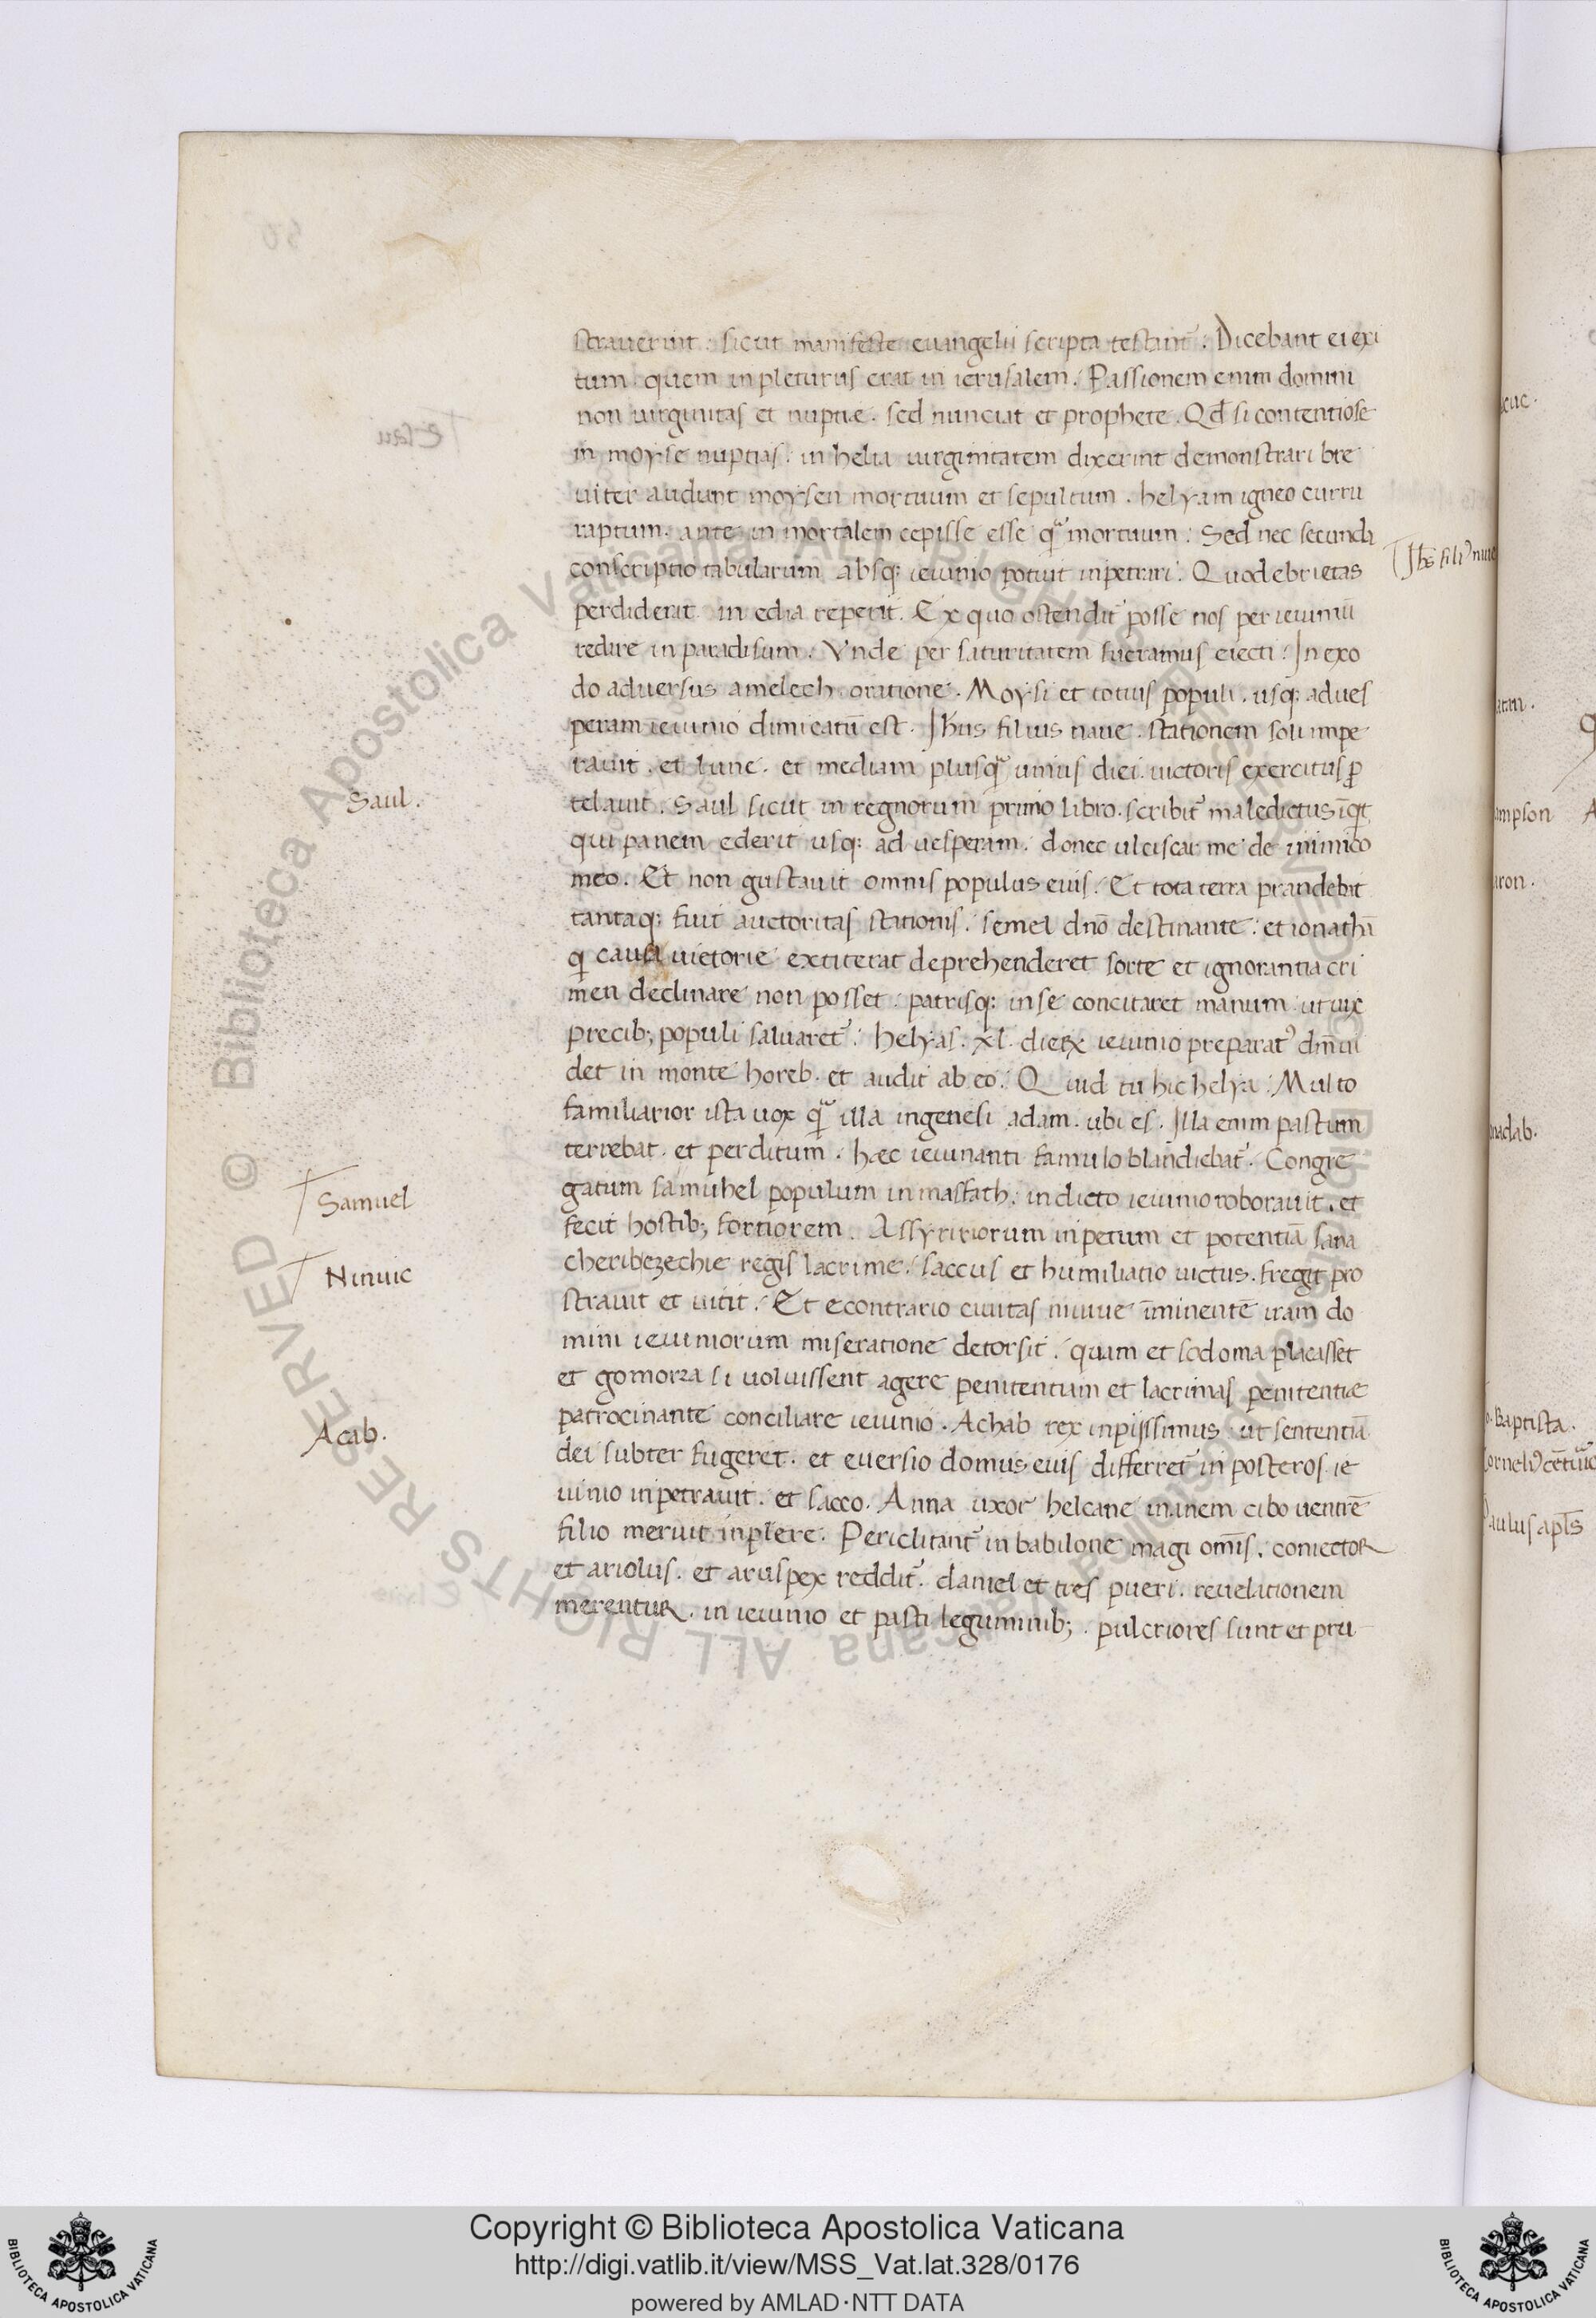 strauerint. sicut manifeste euangelii scripta testant̃. Dicebant ei exi
tum. quem inpleturus erat in ierusalem. Passionem enim domini
non uirginitas et nuptiæ. sed nunciat et prophete. Qđ si contentiose
in moyse nuptias. in helia uirginitatem dixerint demonstrari bre
uiter audiant moysen mortuum et sepultum. helyam igneo curru
raptum. ante in mortalem cepisse esse qᷓ mortuum. Sed nec secunda
conscriptio tabularum absq; ieiunio potuit inpetrari. Quod ebrietas
perdiderit in edia reperit. Ex quo ostendit̃ posse nos per ieiuniū
redire in paradisum. Vnde per saturitatem fueramus eiecti. In exo
do aduersus amelech. oratione. Moysi et totius populi. usq; ad ues
peram ieiunio dimicatū est. Ihūs filius naue. stationem soli impe
rauit. et lune. et mediam plusqᷓ unius diei. uictoris exercitus ꝓ
telauit. Saul sicut in regnorum primo libro. scribit̃ maledictus īqt
qui panem ederit usq; ad uesperam. donec ulciscar me de inimico
meo. Et non gustauit omnis populus eius. Et tota terra prandebit
tantaq; fuit auctoritas stationis. semel dnō destinante. et ionathā
qi causa uictorie extiterat deprehenderet sorte et ignorantia cri
men declinare non posset. patrisq; in se concitaret manum ut uix
precib; populi saluaret̃. helyas. xl. dierꝝ ieiunio preparat᾽ dnm̄ ui
det in monte horeb. et audit ab eo. Quid tu hic helya. Multo
familiarior ista uox qᷓ illa in genesi adam. ubi es. Illa enim pastum
terrebat. et perditum. hæc ieiunanti famulo blandiebat̃. Congre
gatum samuhel populum in masfath. indicto ieiunio roborauit. et
fecit hostib; fortiorem. Assyririorum inpetum et potentiā sana
cherib ezechie regis lacrime. saccus et humiliatio uictus. fregit pro
strauit et uicit. Et econtrario ciuitas niniue īminentē iram do
mini ieiuniorum miseratione detorsit. quam et sodoma placasset
et gomorra si uoluissent agere penitentum et lacrimas penitentiæ
patrocinante conciliare ieiunio. Achab rex inpiissimus ut sententiā
dei subter fugeret. et euersio domus eius differret̃ in posteros. ie
iunio inpetrauit. et sacco. Anna uxor helcane inanem cibo uentrē
filio meruit inplere. Periclitant̃ in babilone magi omīs. coniector
et ariolus. et aruspex reddit̃. daniel et tres pueri. reuelationem
merentur. in ieiunio et pasti leguminib;. pulcriores sunt et pru
Ihs fili᾽ naue
Saul.
Samuel
Niniue
Acab.
Copyright © Biblioteca Apostolica Vaticana
http://digi.vatlib.it/view/MSS_Vat.lat.328/0176
powered by AMLAD·NTT DATA
BIBLIOTECA APOSTOLICA VATICANA
BIBLIOTECA APOSTOLICA VATICANA